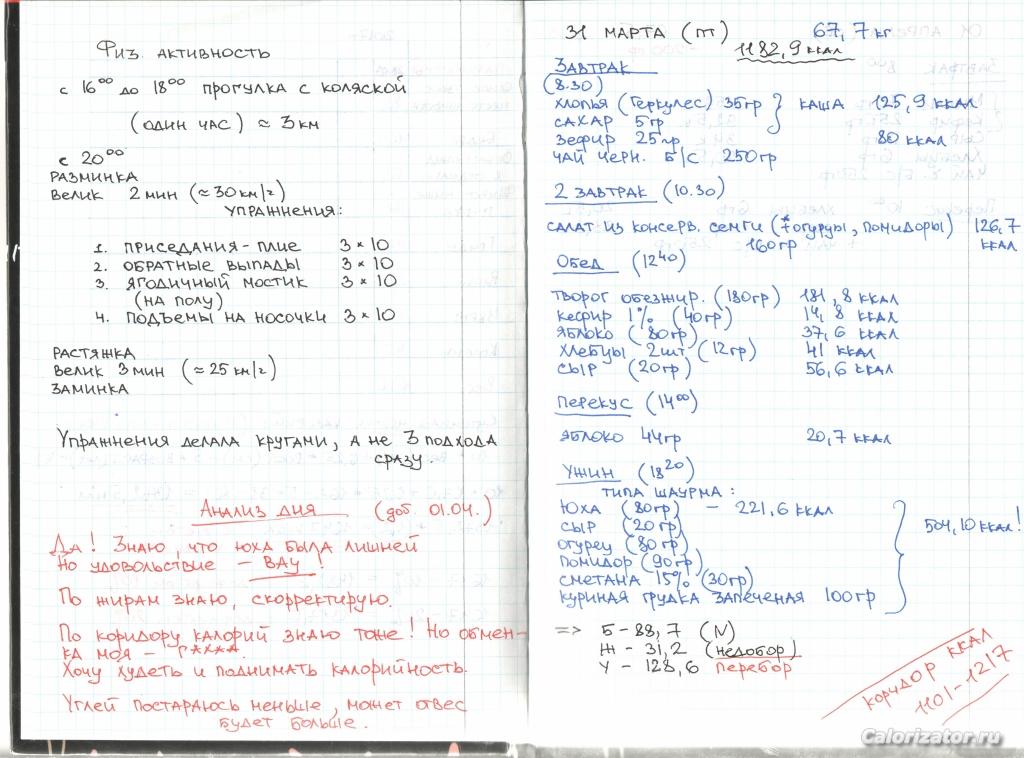 Физ. активность
с 16⁰⁰ до 18⁰⁰ прогулка с коляской
(один час) ≈ 3 км
с 20⁰⁰
Разминка
велик 2 мин (≈30 км/г)
Упражнения:
1. приседания-плие 3×10
2. обратные выпады 3×10
3. ягодичный мостик 3×10
(на полу)
4. подъемы на носочки 3×10
Растяжка
велик 3 мин (≈25 км/г)
заминка
Упражнения делала кругами, а не 3 подхода
сразу.
Анализ дня (доб. 01.04.)
Да! Знаю, что юха была лишней
Но удовольствие – ВАУ!
По жирам знаю, скорректирую.
По коридору калорий знаю тоже! Но обмен-
ка моя –
Хочу худеть и поднимать калорийность.
Углей постараюсь меньше, может отвес
будет больше.
31 марта (пт) 67,7 кг
1182,9 ккал
Завтрак
(8.30)
хлопья (Геркулес) 35гр } каша 125,9 ккал
сахар 5гр
зефир 25гр 80 ккал
чай черн. б/с 250гр
2 завтрак (10.30)
салат из консерв. семги (+огурцы, помидоры) 126,7
160гр ккал
Обед (12⁴⁰)
творог обезжир. (180гр) 181,8 ккал
кефир 1% (40гр) 14,8 ккал
яблоко (80гр) 37,6 ккал
хлебцы 2шт. (12гр) 41 ккал
сыр (20гр) 56,6 ккал
Перекус (14⁰⁰)
яблоко 44гр 20,7 ккал
Ужин (18²⁰)
типа шаурма:
юха (80гр) – 221,6 ккал
сыр (20гр) 504,10 ккал!
огурец (80гр)
помидор (90гр)
сметана 15% (30гр)
куриная грудка запеченая 100гр
=> Б – 88,7 (N)
Ж – 31,2 (недобор)
У – 128,6 перебор
коридор ккал
1101-1217
Calorizator.ru